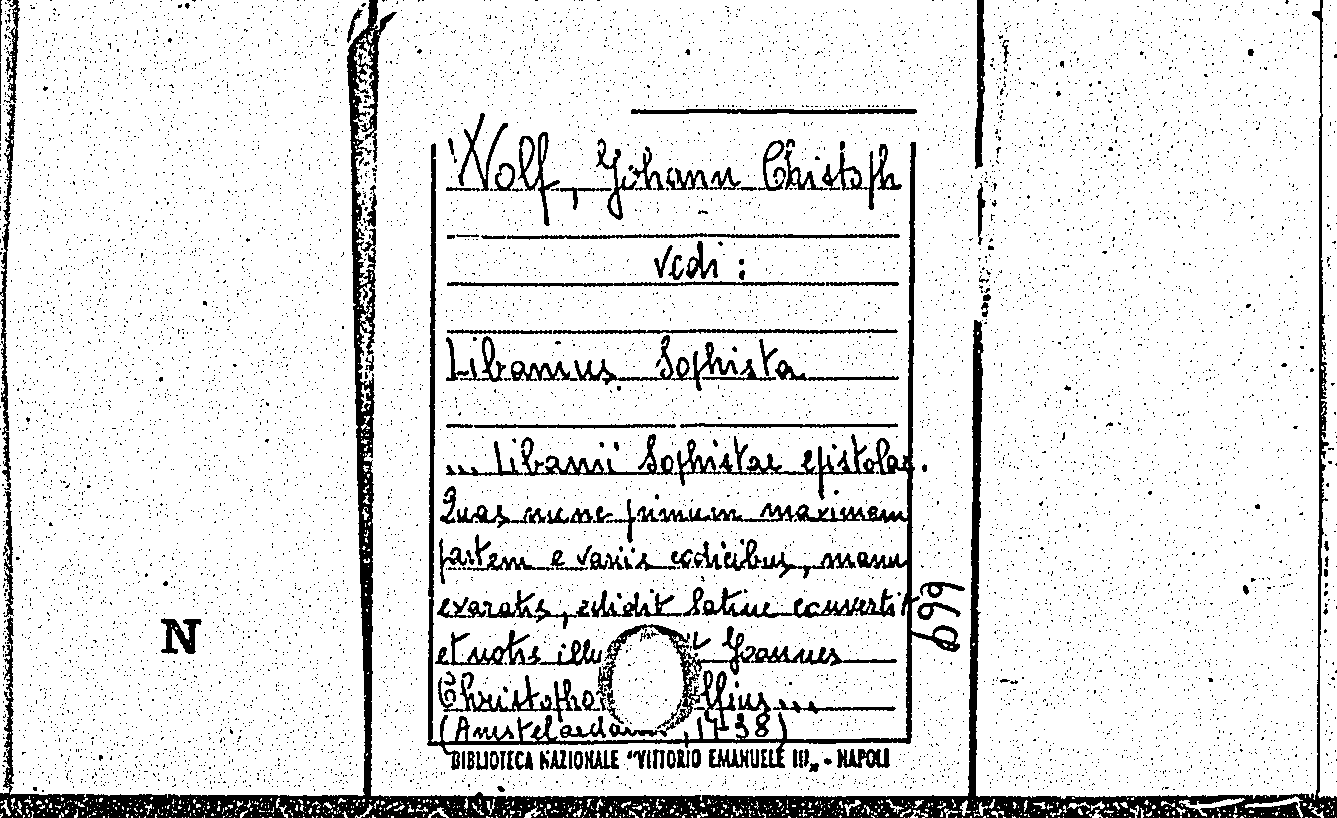 Wolf, Johann Christoph
vedi:
Libanius Sophista
... Libanii Sophistae epistolae.
Quas nunc primum maximam
partem e variis codicibus, manu
exaratis, edidit latine convertit
et notis illu t Joannes
Christopho lfius...
(Amstelaedam , 1738)
BIBLIOTECA NAZIONALE "VITTORIO EMANUELE III„ - NAPOLI
N
699